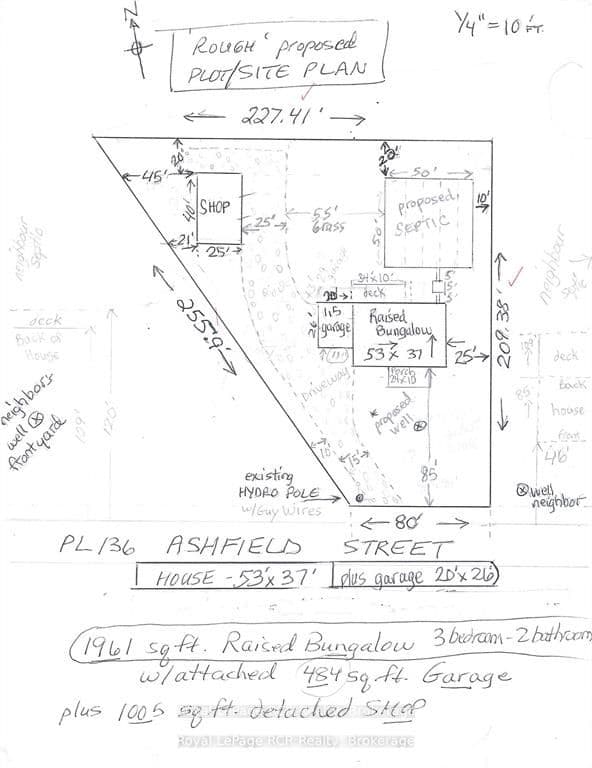 N
1/4" = 10 FT.
'ROUGH' proposed
PLOT/SITE PLAN
227.41'
20'
20'
50'
45'
40'
SHOP
25'
55'
Grass
50'
proposed
SEPTIC
10'
21'
25'
neighbour
septic
neighbour
34x10'
deck
5'
5'
5'
255.9'
20'
26'
garage
Raised
Bungalow
53 x 37
25'
209.38'
deck
Back of
House
Porch
24x10
Driveway
deck
Back
85'
house
front
46'
neighbors
well
front yard
129'
120'
proposed
well
85'
10'
15'
existing
HYDRO POLE
w/Guy Wires
well
neighbor
80'
PL 136 ASHFIELD STREET
HOUSE - 53'x 37' plus garage 20'x 26'
1961 sq ft. Raised Bungalow 3 bedroom - 2 bathroom
w/attached 484 sq ft. Garage
plus 1005 sq ft. detached SHOP
Royal LePage RCR Realty, Brokerage